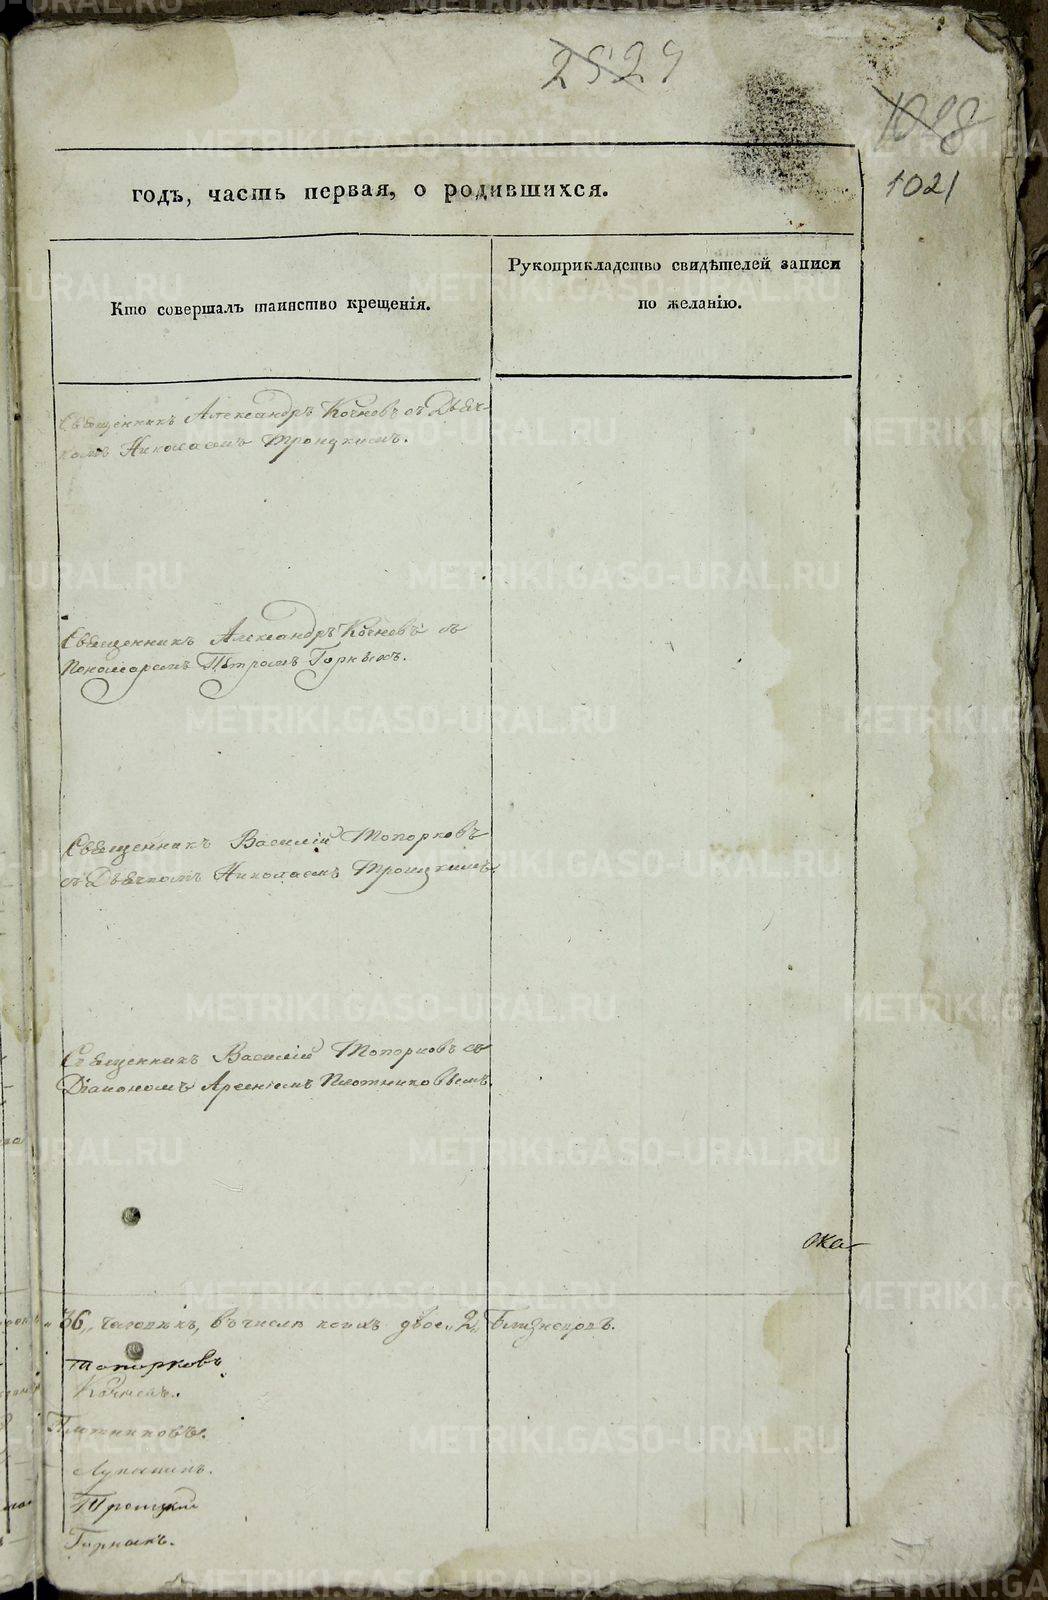 2529
1098
1021
годъ, часть первая, о родившихся.
Кто совершалъ таинство крещенія.
Рукоприкладство свидѣтелей записи
по желанію.
Священникъ Александръ Кочневъ съ Дьяч-
комъ Николаемъ Троицкимъ.
Священникъ Александръ Кочневъ съ
Пономаремъ Петромъ Горныхъ.
Священникъ Василій Топорковъ
съ Дьячкомъ Николаемъ Троицкимъ.
Священникъ Василій Топорковъ съ
Діакономъ Арсеніемъ Плотниковымъ.
36, человѣкъ, въ числѣ коихъ двое 2, Близнецовъ.
Топорковъ
Кочневъ.
Плотниковъ.
Троицкій
Горныхъ.
METRIKI.GASO-URAL.RU